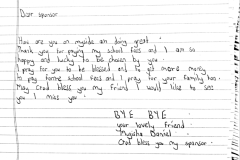 Dear sponsor
How are you on myside am doing great.
Thank you for paying my school fees and I am so
happy and lucky to be chosen by you.
I pray for you to be blessed and to get more money
to pay for me school fees and I pray for your family too.
May God bless you my friend I would like to see
you I miss you.
BYE BYE
your lovely friend
Daniel
God bless you my sponsor.